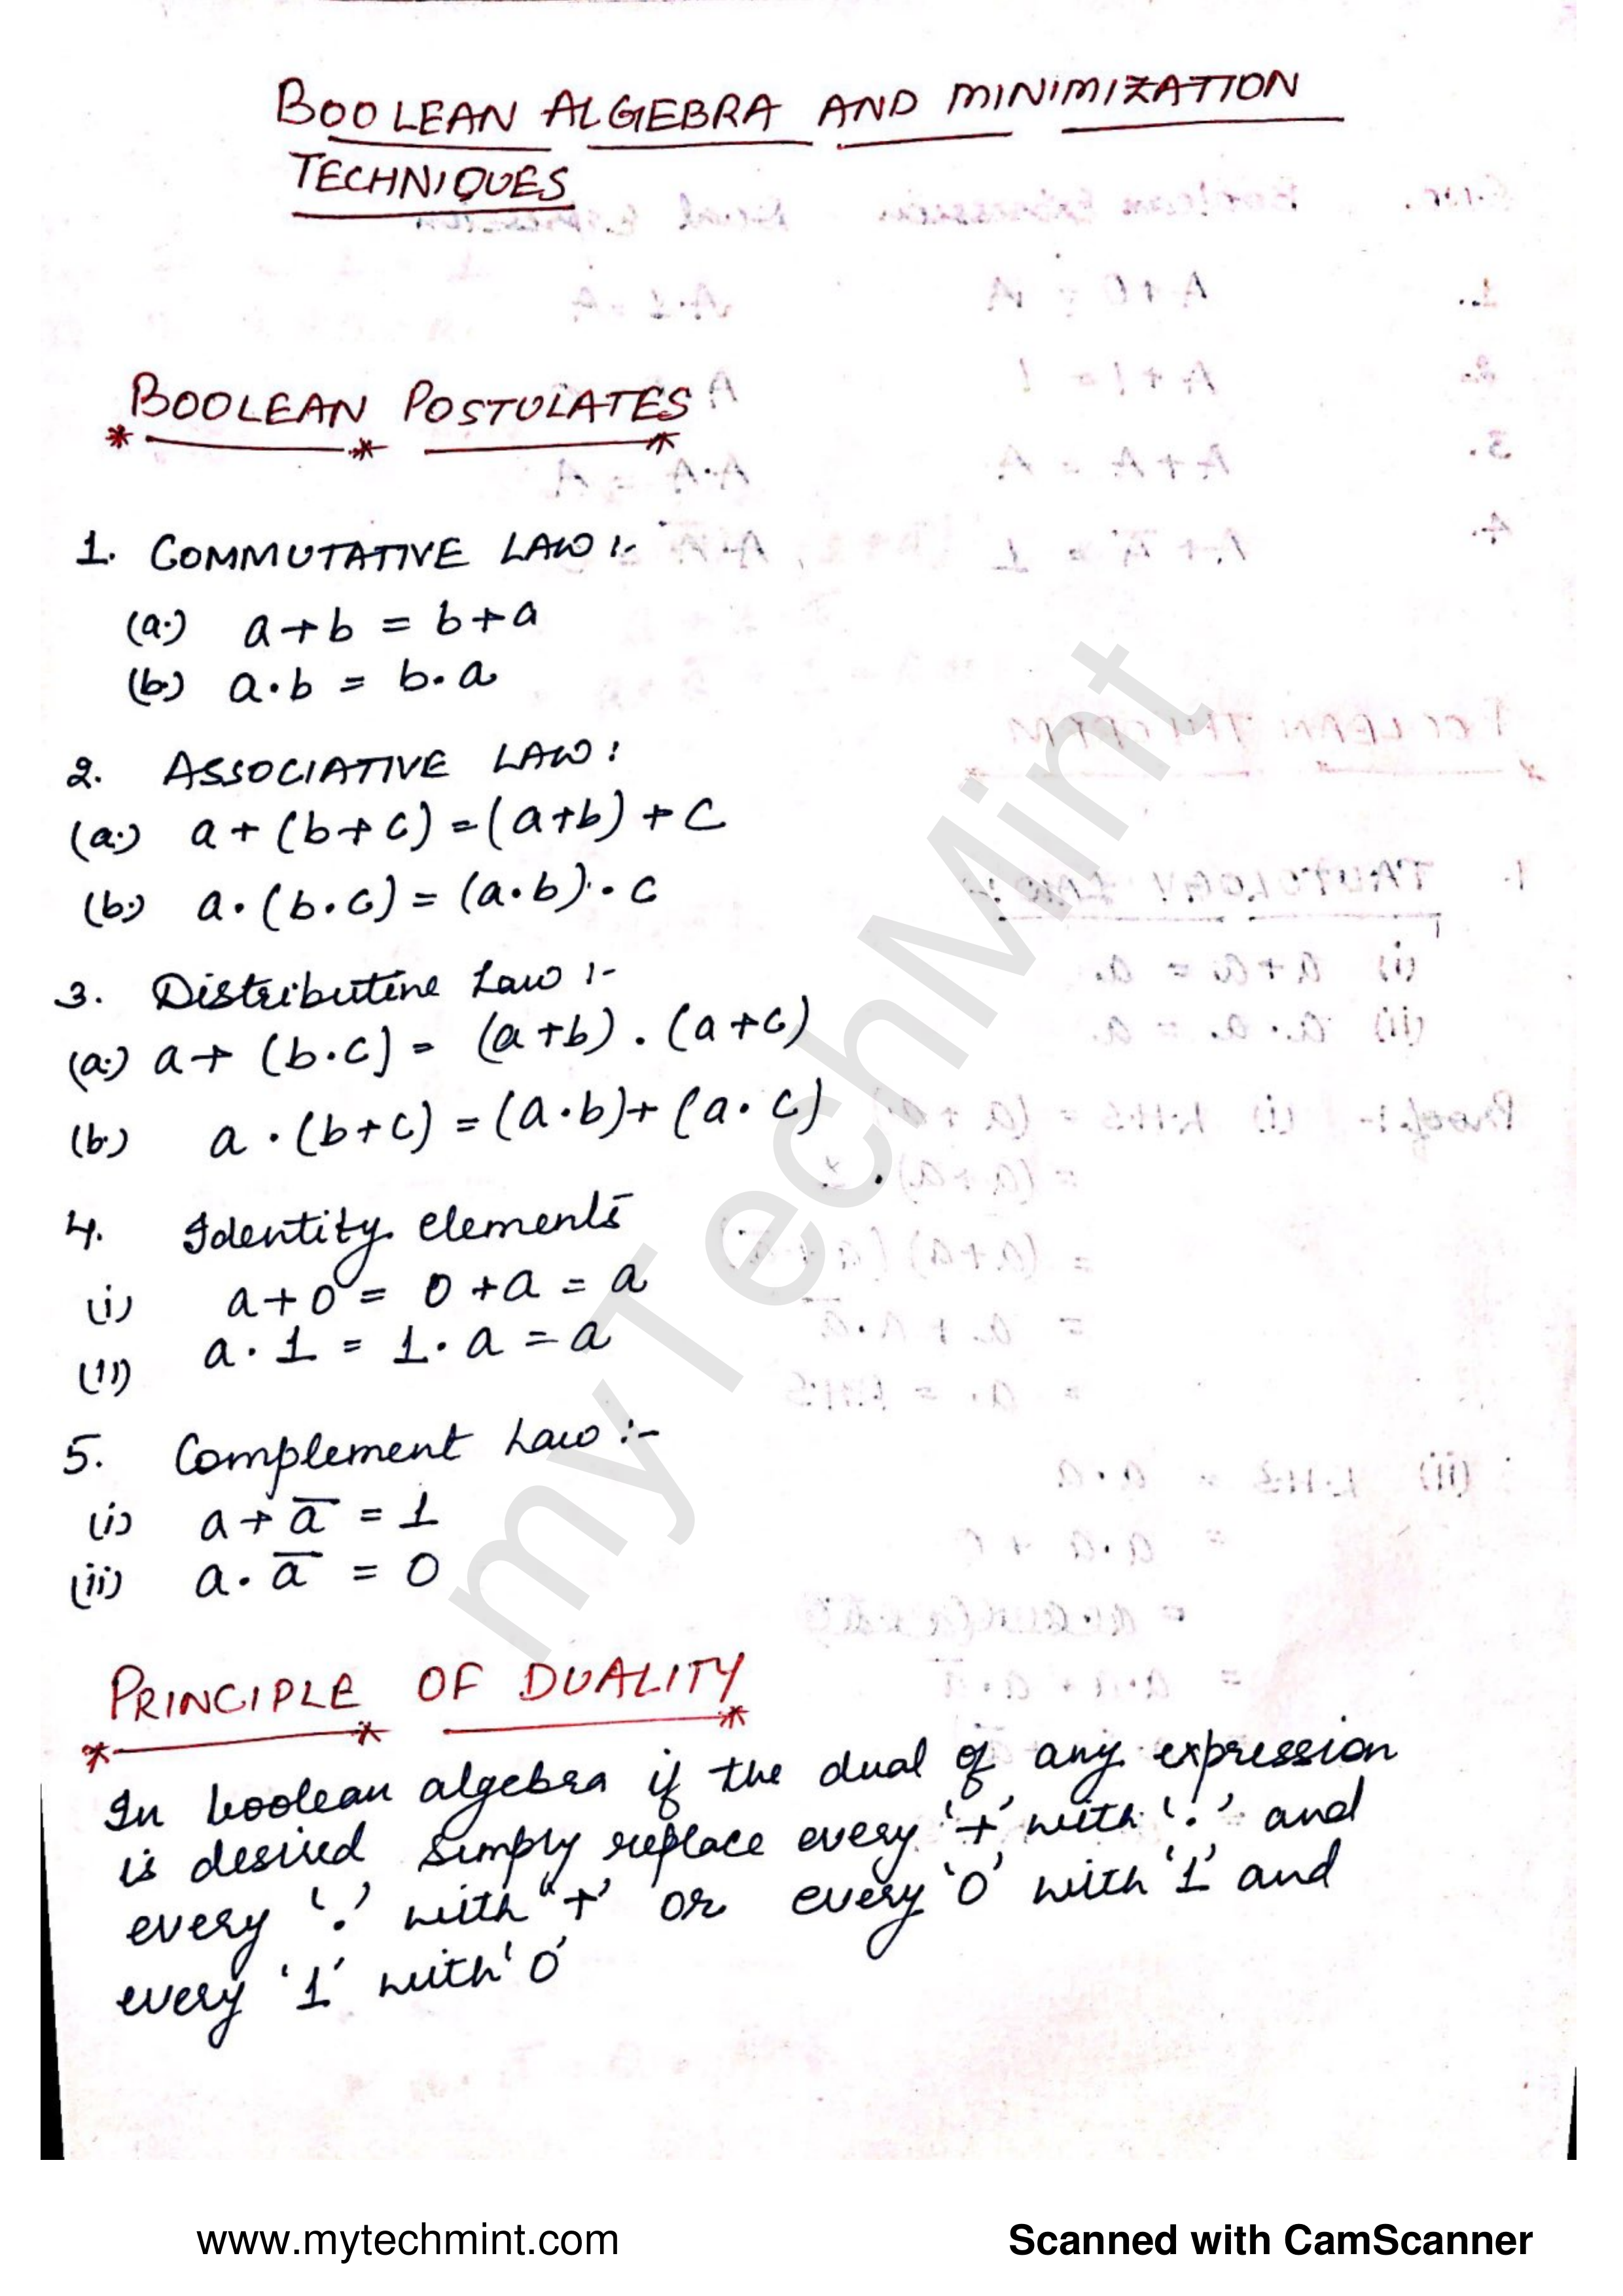 BOOLEAN ALGEBRA AND MINIMIZATION
TECHNIQUES
BOOLEAN POSTULATES
1. COMMUTATIVE LAW :-
(a.) a+b = b+a
(b.) a.b = b.a
2. ASSOCIATIVE LAW :
(a.) a + (b+c) = (a+b) + c
(b.) a.(b.c) = (a.b).c
3. Distributive Law :-
(a.) a+ (b.c) = (a+b).(a+c)
(b.) a.(b+c) = (a.b)+(a.c)
4. Identity elements
(i) a+0 = 0+a = a
(ii) a.1 = 1.a = a
5. Complement Law :-
(i) a+a̅ = 1
(ii) a.a̅ = 0
PRINCIPLE OF DUALITY
In boolean algebra if the dual of any expression
is desired simply replace every '+' with '.' and
every '.' with "+' or every '0' with '1' and
every '1' with '0'
myTechMint
www.mytechmint.com
Scanned with CamScanner